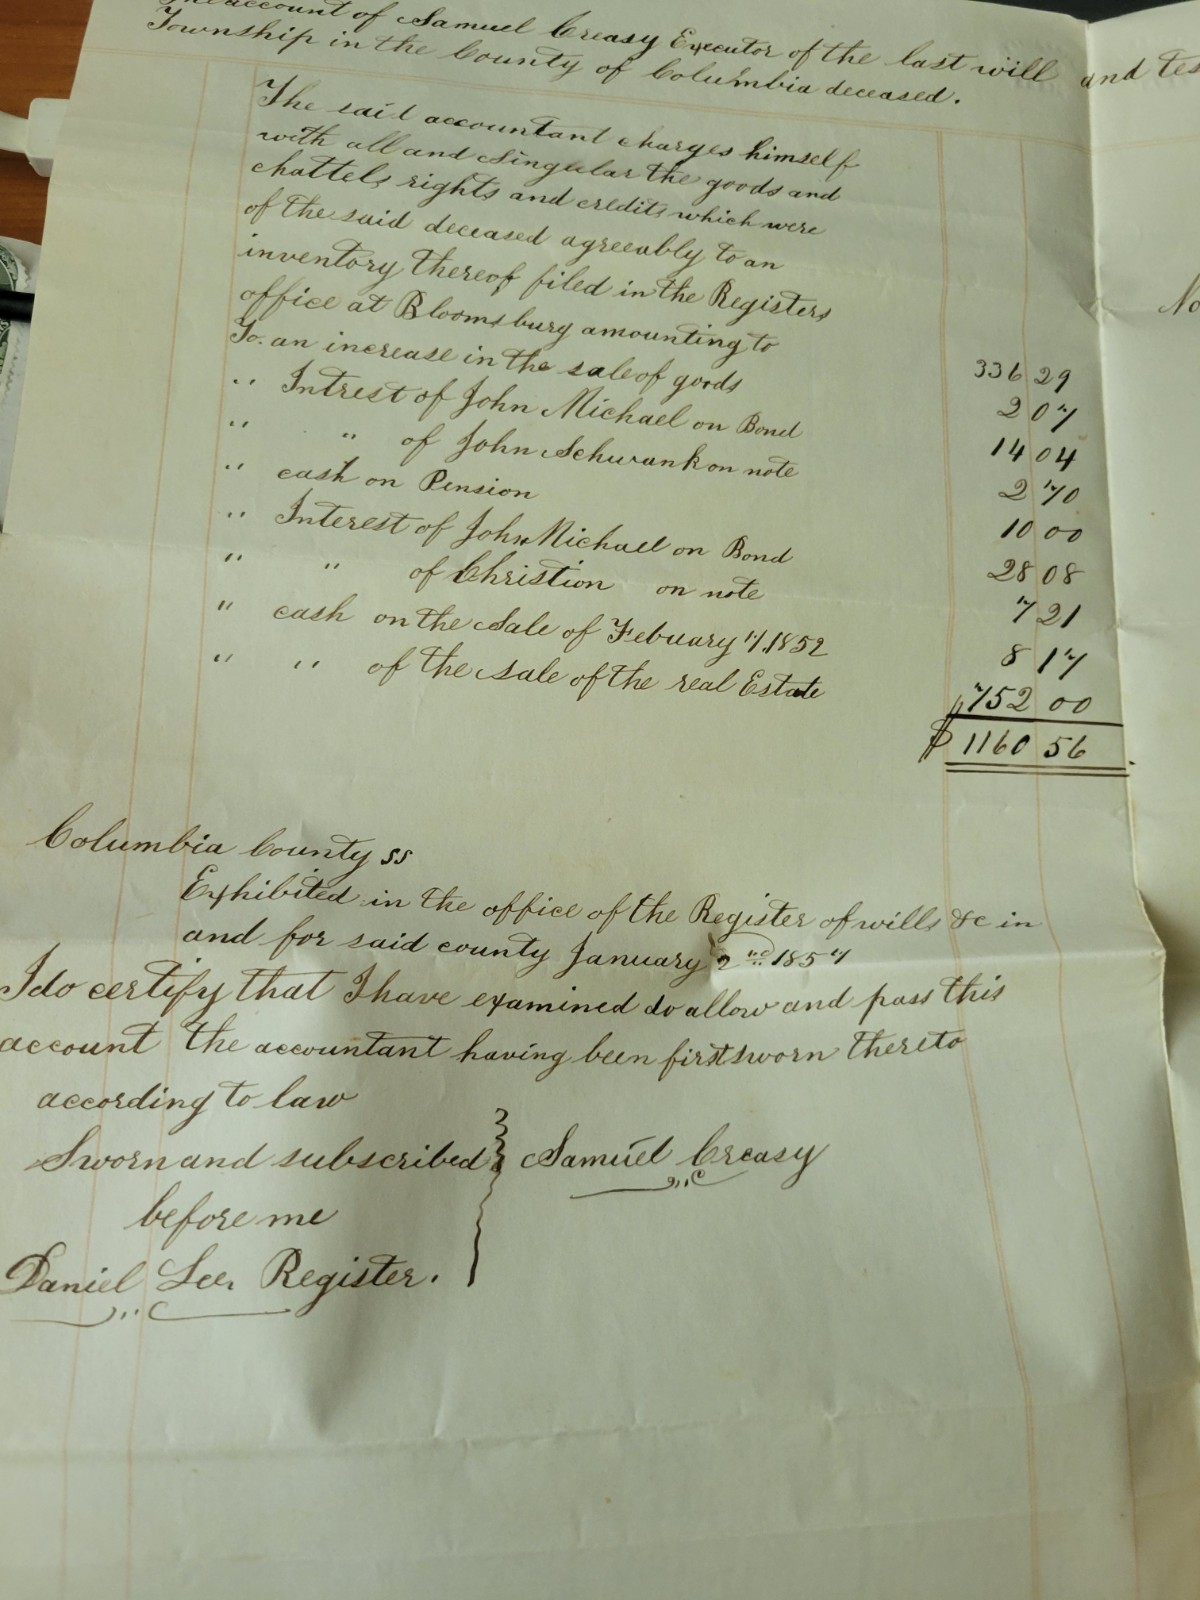 The account of Samuel Creasy Executor of the last will and tes
Township in the County of Columbia deceased.
The said accountant charges himself
with all and singular the goods and
chattels rights and credits which were
of the said deceased agreeably to an
inventory thereof filed in the Registers
office at Bloomsburg amounting to 336 29
To. an increase in the sale of goods 2 07
" Intrest of John Michael on Bond 14 04
" " of John Schwank on note 2 70
" cash on Pension 10 00
" Interest of John Michael on Bond 28 08
" " of Christion on note 7 21
" cash on the Sale of Febuary 7.1852 8 17
" " of the sale of the real Estate 752 00
$ 1160 56
No
Columbia County ss
Exhibited in the office of the Register of wills &c in
and for said county January 2nd 1857
I do certify that I have examined do allow and pass this
account the accountant having been first sworn thereto
according to law
Sworn and subscribed } Samuel Creasy
before me
Daniel Lee, Register.